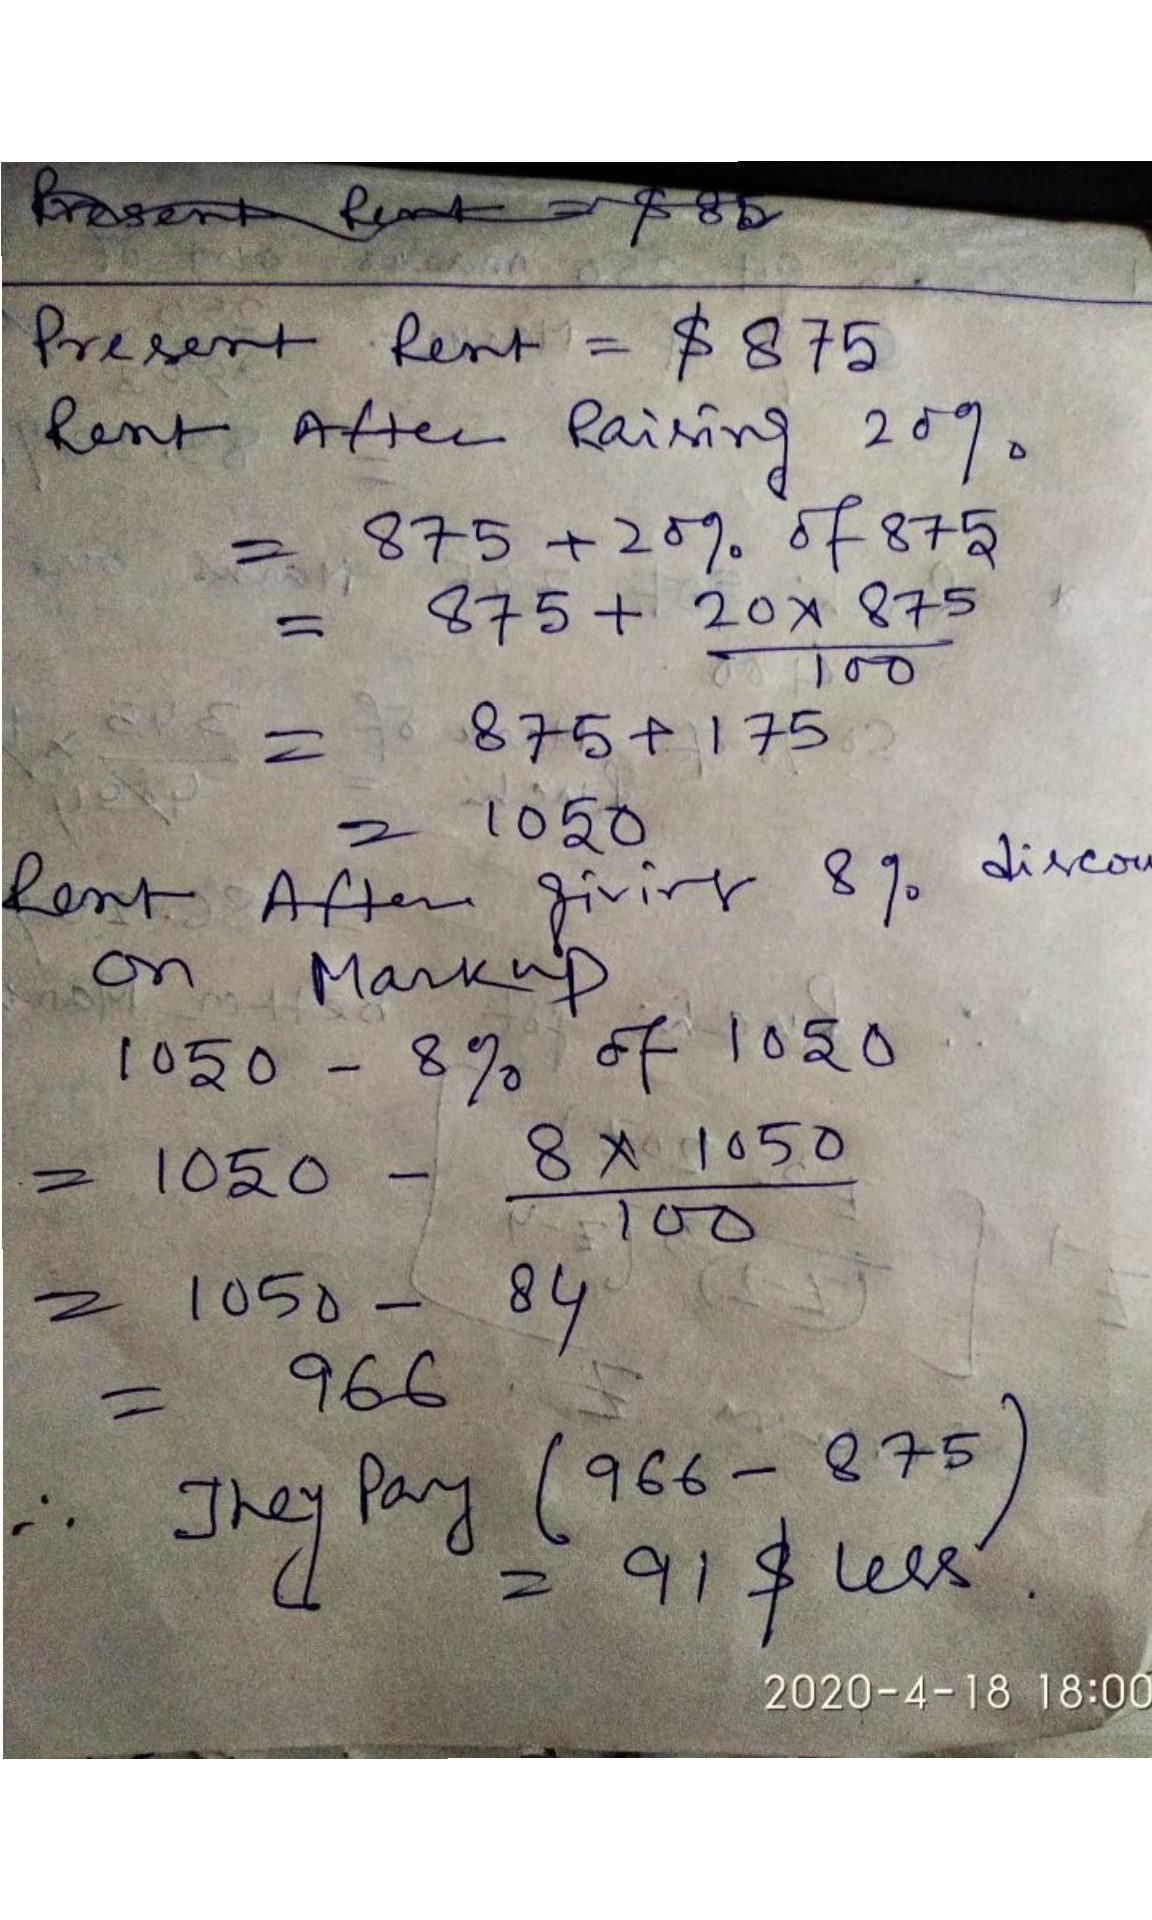 Present Rent = $ 85
Present Rent = $ 875
Rent After Raising 20%
= 875 + 20% of 875
= 875 + 20 x 875
100
= 875 + 175
= 1050
Rent After giving 8% discou
on Markup
1050 - 8% of 1050
= 1050 - 8 x 1050
100
= 1050 - 84
= 966
∴ They Pay (966 - 875)
= 91 $ less.
2020-4-18 18:00